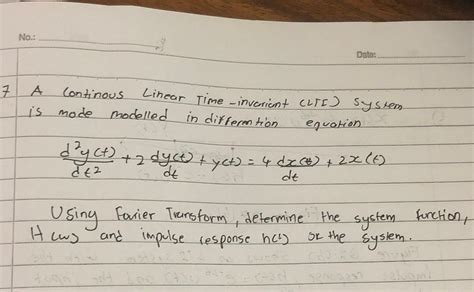 No.:
Date:
7 A continous Linear Time-invarient (LTI) system
is mode modelled in differention equation
d²y(t)/dt² + 2 dy(t)/dt + y(t) = 4 dx(t)/dt + 2x(t)
Using Fourier Transform, determine the system function,
H(w) and impulse response h(t) of the system.